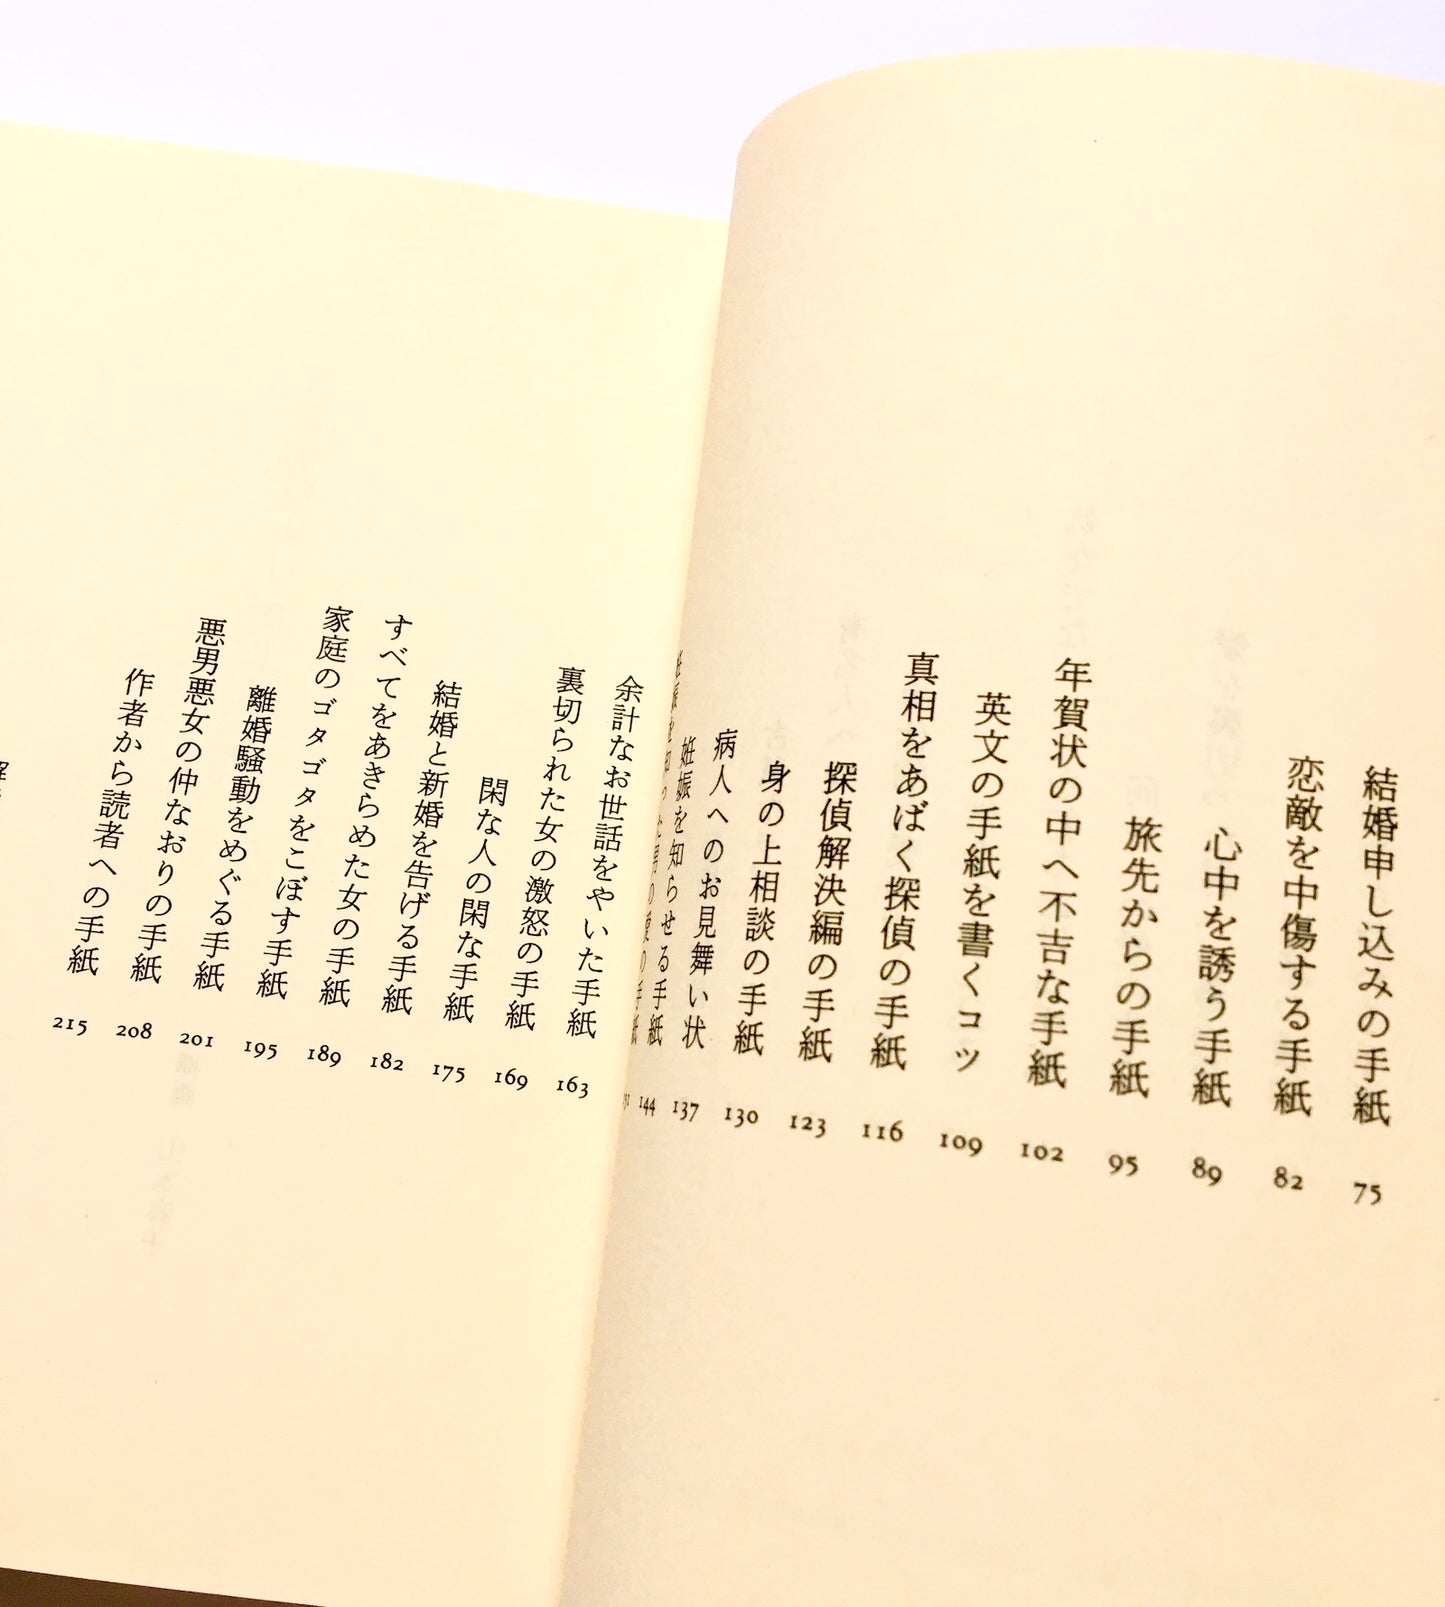 結婚申し込みの手紙 75
恋敵を中傷する手紙 82
心中を誘う手紙 89
旅先からの手紙 95
年賀状の中へ不吉な手紙 102
英文の手紙を書くコツ 109
真相をあばく探偵の手紙 116
探偵解決編の手紙 123
身の上相談の手紙 130
病人へのお見舞い状 137
妊娠を知らせる手紙 144
妊娠を知った男の愛の手紙
余計なお世話をやいた手紙 163
裏切られた女の激怒の手紙 169
閑な人の閑な手紙 175
結婚と新婚を告げる手紙 182
すべてをあきらめた女の手紙 189
家庭のゴタゴタをこぼす手紙 195
離婚騒動をめぐる手紙 201
悪男悪女の仲なおりの手紙 208
作者から読者への手紙 215